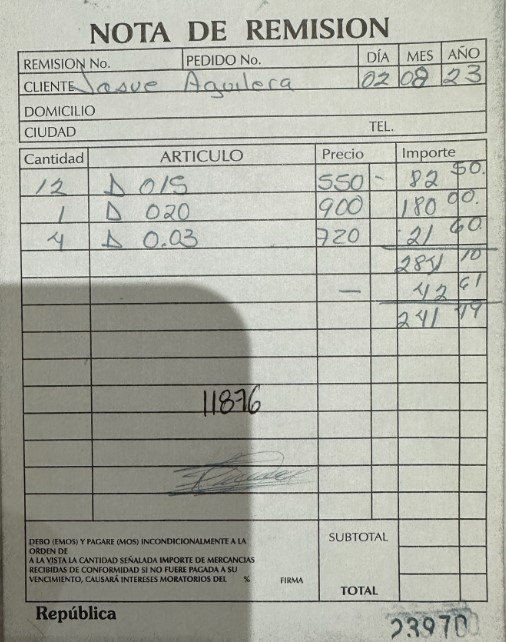 NOTA DE REMISION
REMISION No. PEDIDO No. DÍA MES AÑO
CLIENTE Josue Aguilera 02 08 23
DOMICILIO
CIUDAD TEL.
Cantidad ARTICULO Precio Importe
12 D 015 550 - 82 50.
1 D 020 900 180 00.
4 D 0.03 720 21 60
284 10
— 42 61
241 49
11876
DEBO (EMOS) Y PAGARE (MOS) INCONDICIONALMENTE A LA SUBTOTAL
ORDEN DE
A LA VISTA LA CANTIDAD SEÑALADA IMPORTE DE MERCANCIAS
RECIBIDAS DE CONFORMIDAD SI NO FUERE PAGADA A SU
VENCIMIENTO, CAUSARÁ INTERESES MORATORIOS DEL % FIRMA TOTAL
República
23970